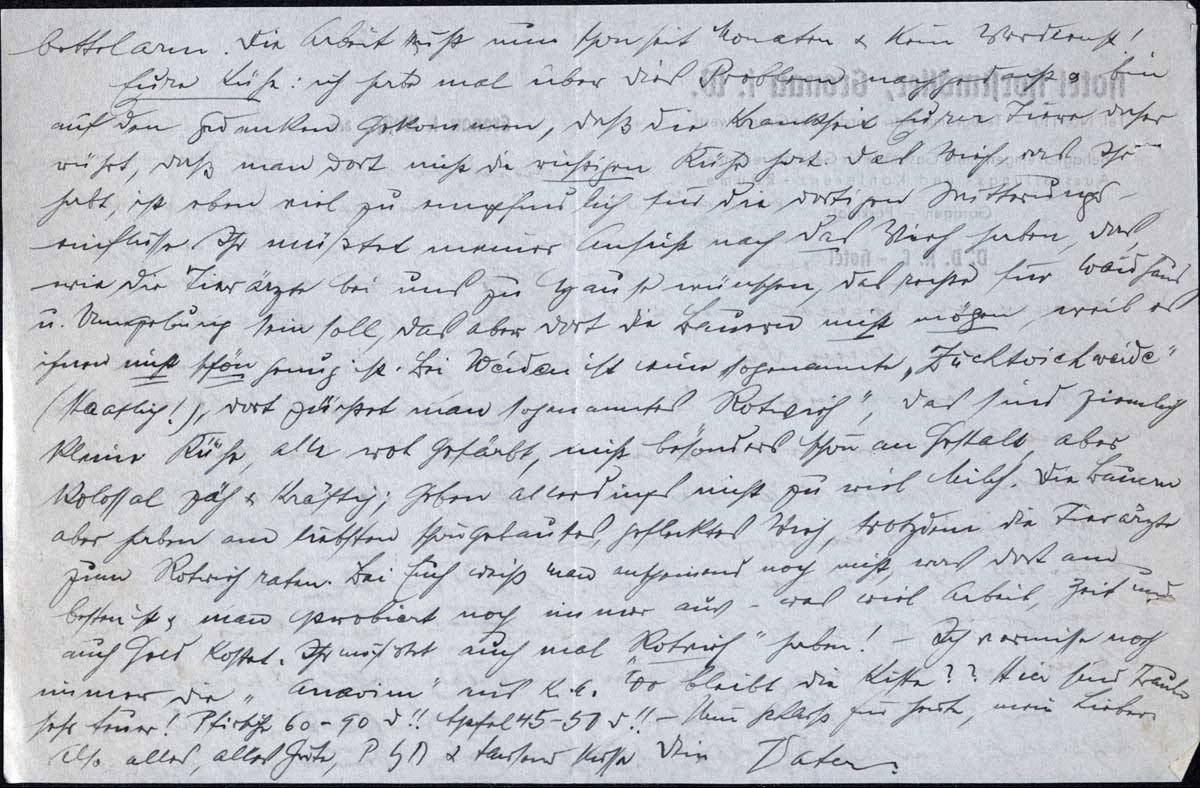 bettelarm. Die Arbeit ruht nun schon seit Monaten & kein Verdienst!
Eure Kühe: ich habe mal über dies Problem nachgedacht & bin
auf den Gedanken gekommen, daß die Krankheit Eurer Tiere daher
rührt, daß man dort nicht die richtigen Kühe hat. Das Vieh, das Ihr
habt, ist eben viel zu empfindlich für die dortigen Witterungs-
einflüsse. Ihr müßtet meiner Ansicht nach das Vieh haben, das,
wie die Tierärzte bei uns zu Hause wünschen, das rechte für
u. Umgebung sein soll, das aber dort die Bauern nicht mögen, weil es
ihnen nicht schön genug ist. Bei Weiden ist eine sogenannte „Zuchtviehweide"
(staatlich!), dort züchtet man sogenanntes „Rotvieh", das sind ziemlich
kleine Kühe, alle rot gefärbt, nicht besonders schön an Gestalt, aber
kolossal zäh & kräftig; geben allerdings nicht zu viel Milch. Die Bauern
aber haben am liebsten schöngebautes, geflecktes Vieh, trotzdem die Tierärzte
zum Rotvieh raten. Bei Euch weiß man anscheinend noch nicht, was dort am
besten ist & man probiert noch immer aus – was viel Arbeit, Zeit und
auch Geld kostet. Ihr müßtet auch mal „Rotvieh" haben! – Ich vermisse noch
immer die „Anavim" aus K. Wo bleibt die Kiste?? Hier sind Trauben
sehr teuer! Pfirsiche 60–90 d!! Apfel 45–50 d!! – Nun Schluß für heute, mein Lieber.
Also alles, alles Gute, & tausend Küsse Dein Vater.